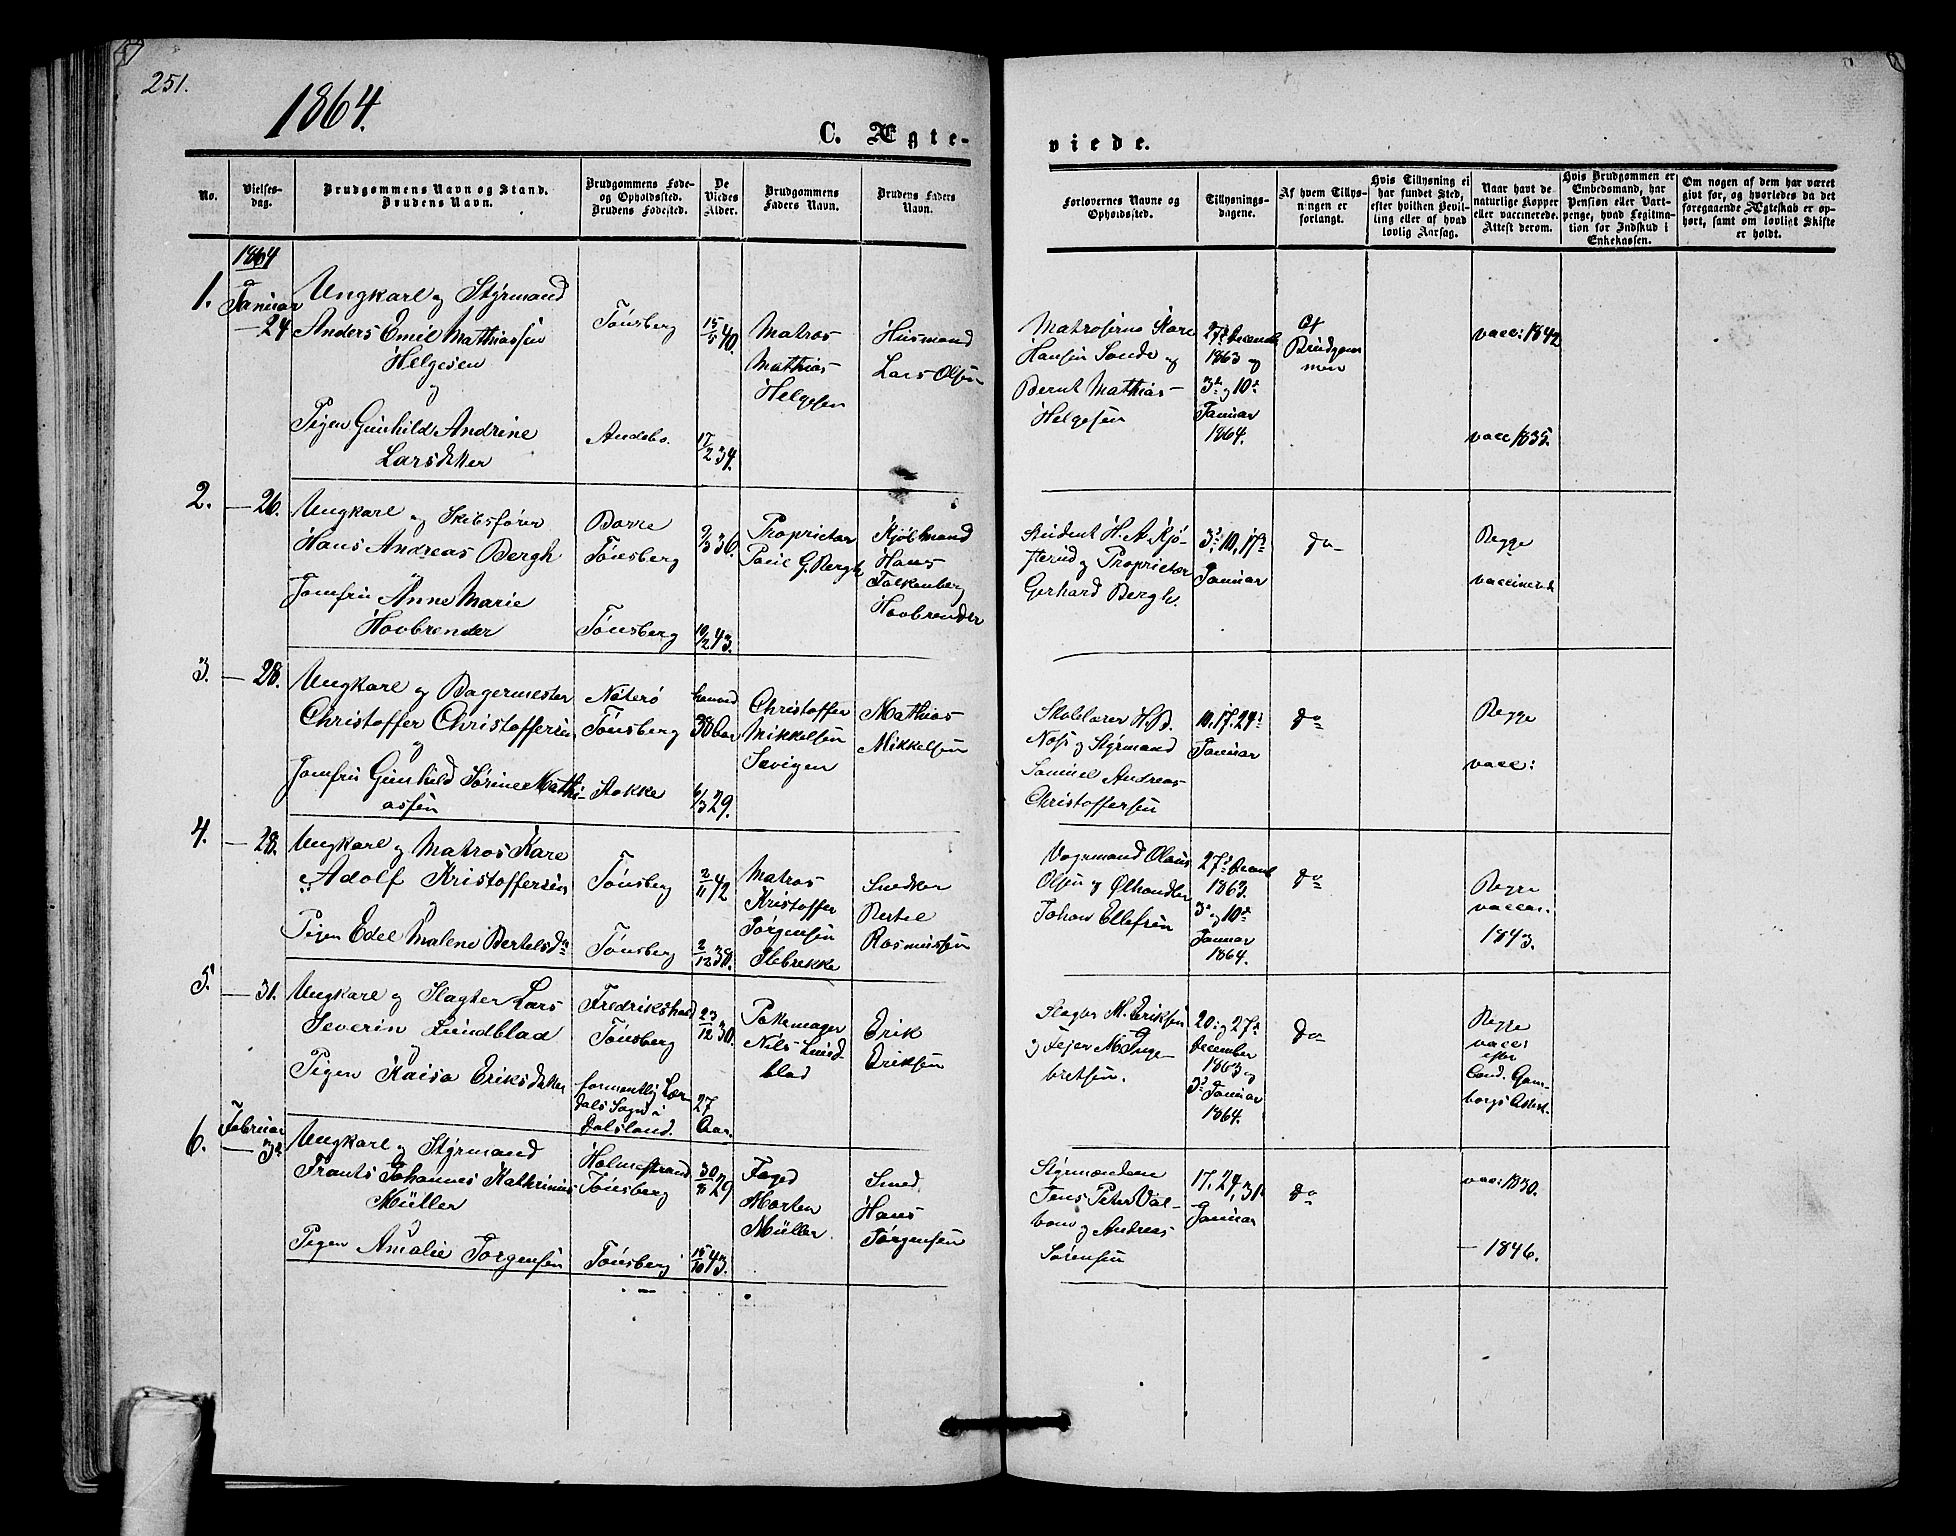 251.
1864.
C. Ægte-
viede.
No.
Vielses-
dag.
Brudgommens Navn og Stand.
Brudens Navn.
Brudgommens Føde-
og Opholdssted.
Brudens Fødested.
De
Viedes
Alder.
Brudgommens
Faders Navn.
Brudens Faders
Navn.
Forlovernes Navne og
Opholdssted.
Tillysnings-
dagene.
Af hvem Tillys-
ningen er
forlangt.
Hvis Tillysning ei
har fundet Sted,
efter hvilken Bevil-
ling eller af hvad
lovlig Aarsag.
Naar havt de
naturlige Kopper
eller vaccinerede.
Attest derom.
Hvis Brudgommen er
Embedsmand, har
Pension eller Vart-
penge, hvad Legitima-
tion for Indskud i
Enkekassen.
Om nogen af dem har været
givt for, og hvorledes da det
foregaaende Ægteskab er op-
hørt, samt om lovligt Skifte
er holdt.
1864
1. Januar
24
Ungkarl og Styrmand
Anders Emil Matthiassen
Helgesen
og
Pigen Gunhild Andrine
Larsdatter
Tønsberg
Andebo.
15/5 40.
17/2 34.
Matros
Mathias
Helgesen
Husmand
Lars Olsen
Matroserne Kare
Hansen Sande og
Bernt Mathias
Helgesen
27de Decemb
1863 og
3d og 10d
Januar
1864.
Af
Brudgom
men
vacc: 1842
vacc 1835.
2. — 26.
Ungkarl og Skibsfører
Hans Andreas Bergh
og
Jomfru Anne Marie
Hovbrender
Borre
Tønsberg
Tønsberg
9/3 36.
10/2 43.
Proprietær
Poul G. Bergh
Kjøbmand
Hans
Falkenberg
Hovbrender
Student H. A. Kjø-
sterud og Proprietær
Gerhard Bergh.
3d, 10, 17d
Januar
do
Begge
vaccinerede
3. — 28.
Ungkarl og Bagermester
Christoffer Christoffersen
og
Jomfru Gunhild Sørine Mathi-
asen
Nøterø
Tønsberg
Stokke
6/3 29.
Christoffer
Mikkelsen
Mathias
Mikkelsen
Skolelærer H. B.
Noss og Styrmand
Samuel Andreas
Christoffersen
10. 17. 24d
Januar
do
Begge
vacc:
4. — 28.
Ungkarl og Matros Kare
Adolf Kristoffersen
og
Pigen Edel Malene Bertelsdr
Tønsberg
Tønsberg
2/11 42
2/12 38.
Matros
Kristoffer
Jørgensen
Slebrekke
Snedker
Bertel
Rasmussen
Vognmand Olaus
Olsen og Ølhandler
Johan Ellefsen
27d Decemb
1863.
3d og 10d
Januar
1864.
do
Begge
vaccer.
1843.
5. — 31.
Ungkarl og Slagter Lars
Severin Lundblad
og
Pigen Kaisa Eriksdatter
Fredrikshald
Tønsberg
formentlig Lær-
dals Sogn i
Dalsland.
23/12 30.
27
Aar.
Nils Lund-
blad
Erik
Eriksen
Slagter M. Eriksen
og Fejer M. Inge-
bretsen.
20 og 27d
December
1863 og
3d Januar
1864.
do
Begge
vacces
efter
Cand. Gam-
borgs Attest.
6. Februar
— 3d
Ungkarl og Styrmand
Frants Johannes Kathrinus
Müller
og
Pigen Amalie Jørgensen
Holmestrand
Tønsberg
Tønsberg
29
15/10 43.
Foged
Morten
Müller.
Smed
Hans
Jørgensen
Styrmændene
Jens Peter Val-
bom og Andreas
Sørensen
17. 24, 31d
Januar
do
vac: 1830.
— 1846.